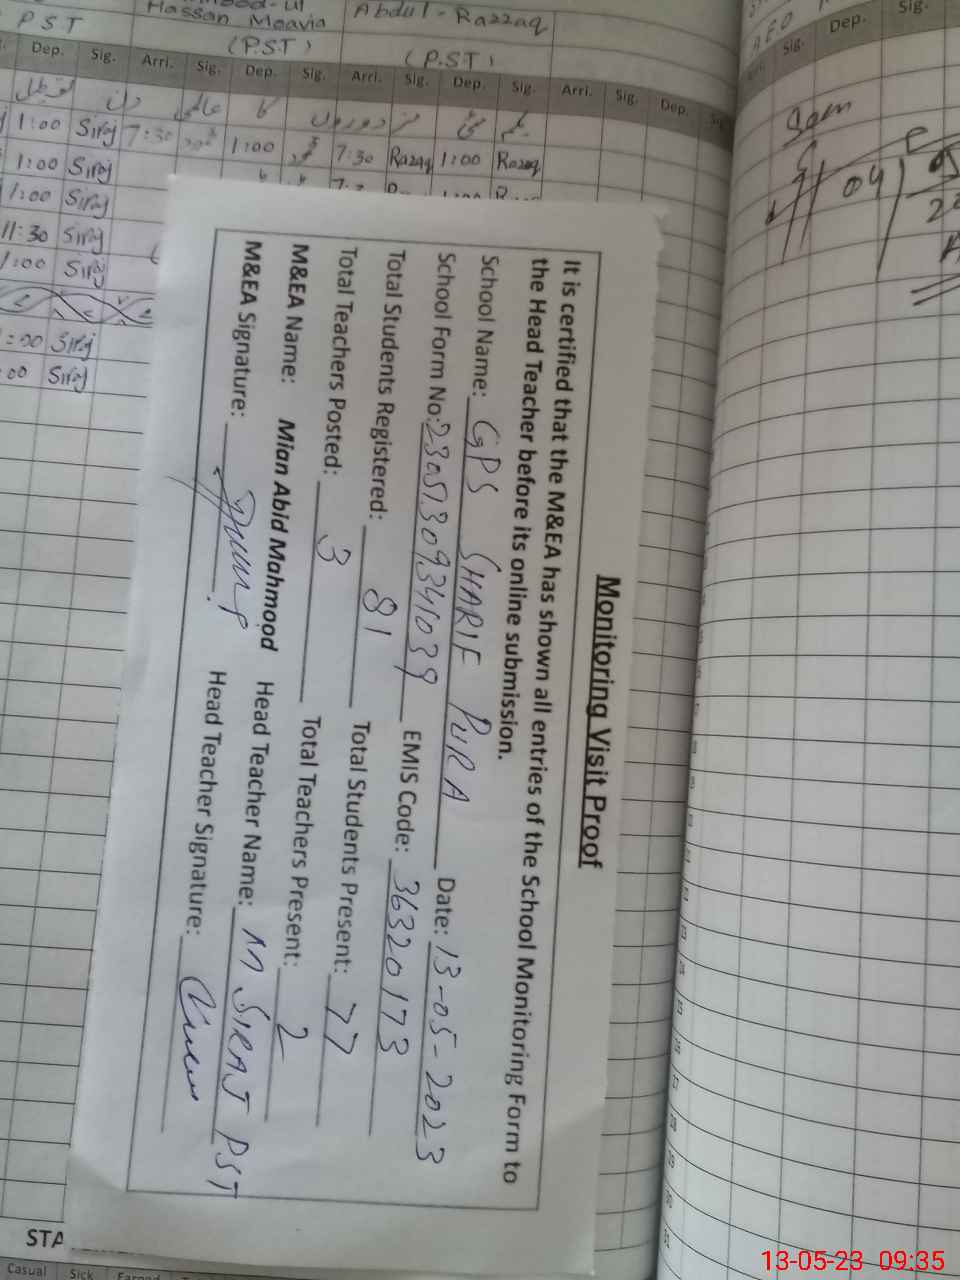 Hassan Moavia
Abdul-Razzaq
PST
(P.S.T)
(P.S.T)
Dep. Sig. Arri. Sig. Dep. Sig. Arri. Sig. Dep. Sig. Arri. Sig. Dep. Sig.
1:00 Siraj 7:30 1:00 7:30 Razaq 1:00 Razaq
1:00 Siraj
1:00 Siraj
11:30 Siraj
1:00 Siraj
:00 Siraj
:00 Siraj
A.E.O
Sig. Dep. Sig.
Monitoring Visit Proof
It is certified that the M&EA has shown all entries of the School Monitoring Form to
the Head Teacher before its online submission.
School Name: GPS SHARIF PURA Date: 13-05-2023
School Form No: 23051309341039 EMIS Code: 36320173
Total Students Registered: 81 Total Students Present: 77
Total Teachers Posted: 3 Total Teachers Present: 2
M&EA Name: Mian Abid Mahmood Head Teacher Name: M SIRAJ PST
M&EA Signature: Head Teacher Signature:
STA
Casual Sick
13-05-23 09:35